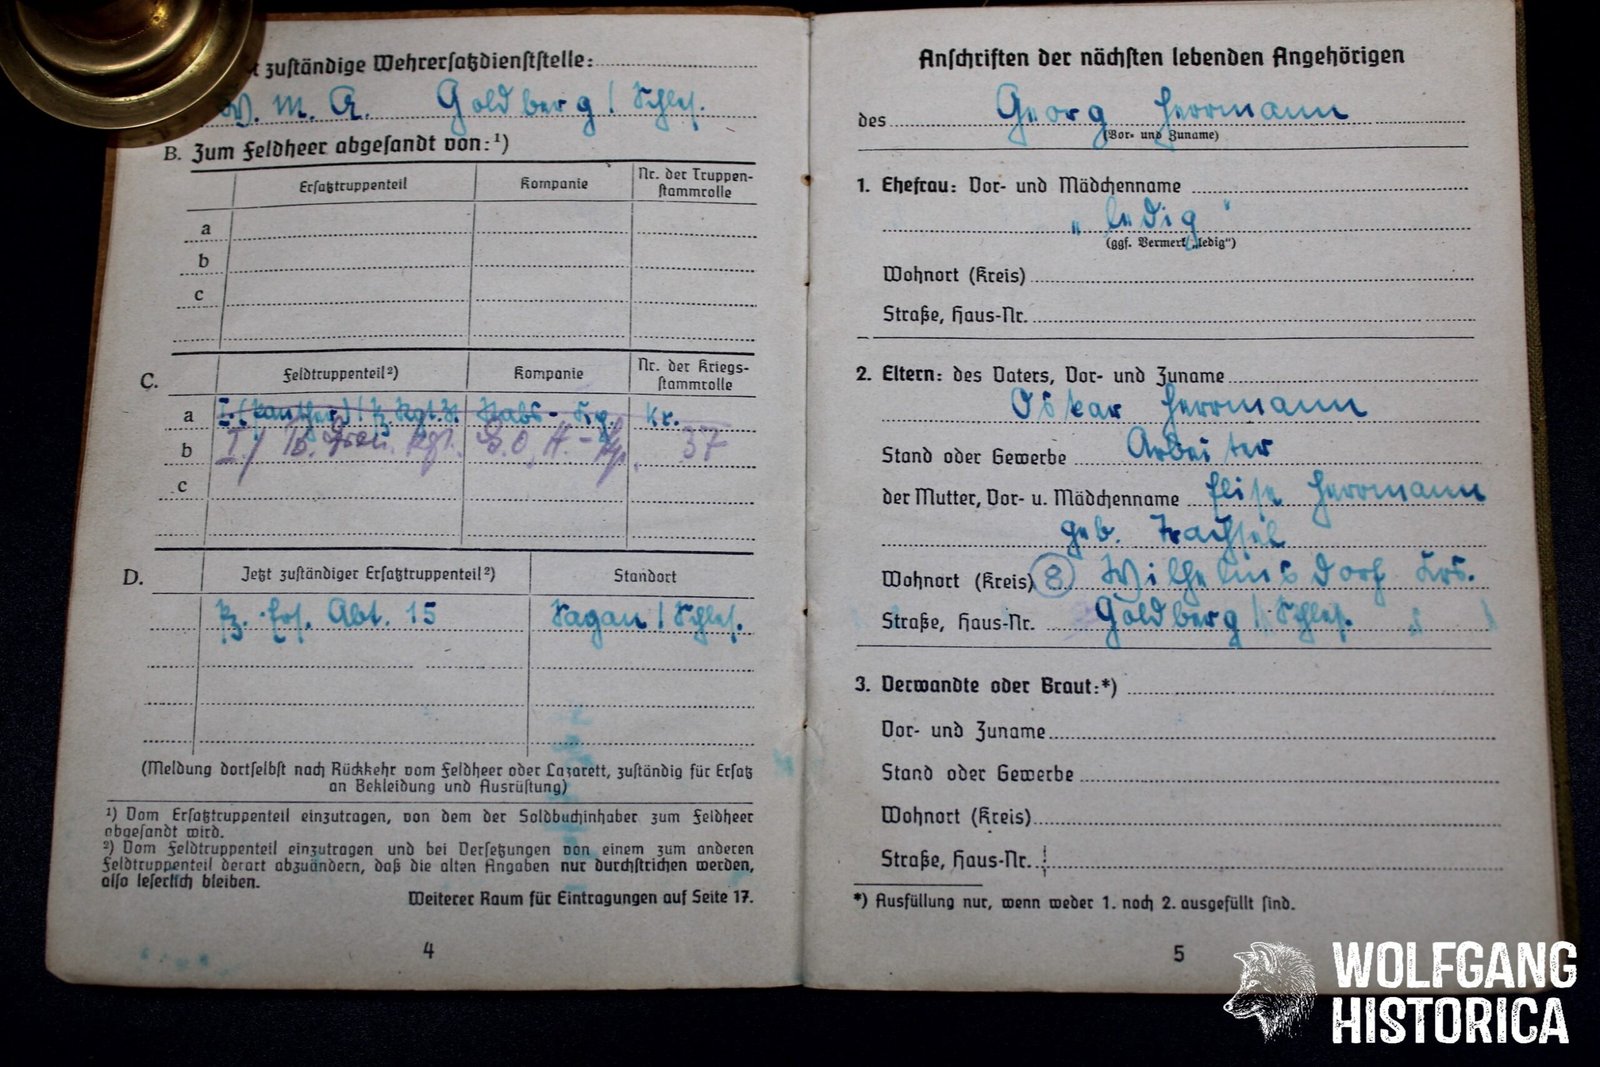 t zuständige Wehrersatzdienststelle:
W. M. A. Goldberg / Schles.
B. Zum Feldheer abgesandt von:¹)
Ersatztruppenteil Kompanie Nr. der Truppen-
stammrolle
a
b
c
C. Feldtruppenteil²) Kompanie Nr. der Kriegs-
stammrolle
a I. (Panther) / Pz. Rgt. Stabs- Kr.
b I./ Pz. Gren. Rgt. 37
c
D. Jetzt zuständiger Ersatztruppenteil²) Standort
Pz. Ers. Abt. 15 Sagan / Schles.
(Meldung dortselbst nach Rückkehr vom Feldheer oder Lazarett, zuständig für Ersatz
an Bekleidung und Ausrüstung)
¹) Vom Ersatztruppenteil einzutragen, von dem der Soldbuchinhaber zum Feldheer
abgesandt wird.
²) Vom Feldtruppenteil einzutragen und bei Versetzungen von einem zum anderen
Feldtruppenteil derart abzuändern, daß die alten Angaben nur durchstrichen werden,
also leserlich bleiben.
Weiterer Raum für Eintragungen auf Seite 17.
4
Anschriften der nächsten lebenden Angehörigen
des Georg Herrmann
(Vor- und Zuname)
1. Ehefrau: Vor- und Mädchenname
„ledig"
(ggf. Vermerk „ledig")
Wohnort (Kreis)
Straße, Haus-Nr.
2. Eltern: des Vaters, Vor- und Zuname
Oskar Herrmann
Stand oder Gewerbe Arbeiter
der Mutter, Vor- u. Mädchenname Elise Herrmann
geb.
Wohnort (Kreis) 8 Wilhelmsdorf Krs.
Straße, Haus-Nr. Goldberg / Schles.
3. Verwandte oder Braut:*)
Vor- und Zuname
Stand oder Gewerbe
Wohnort (Kreis)
Straße, Haus-Nr.
*) Ausfüllung nur, wenn weder 1. noch 2. ausgefüllt sind.
5
WOLFGANG
HISTORICA